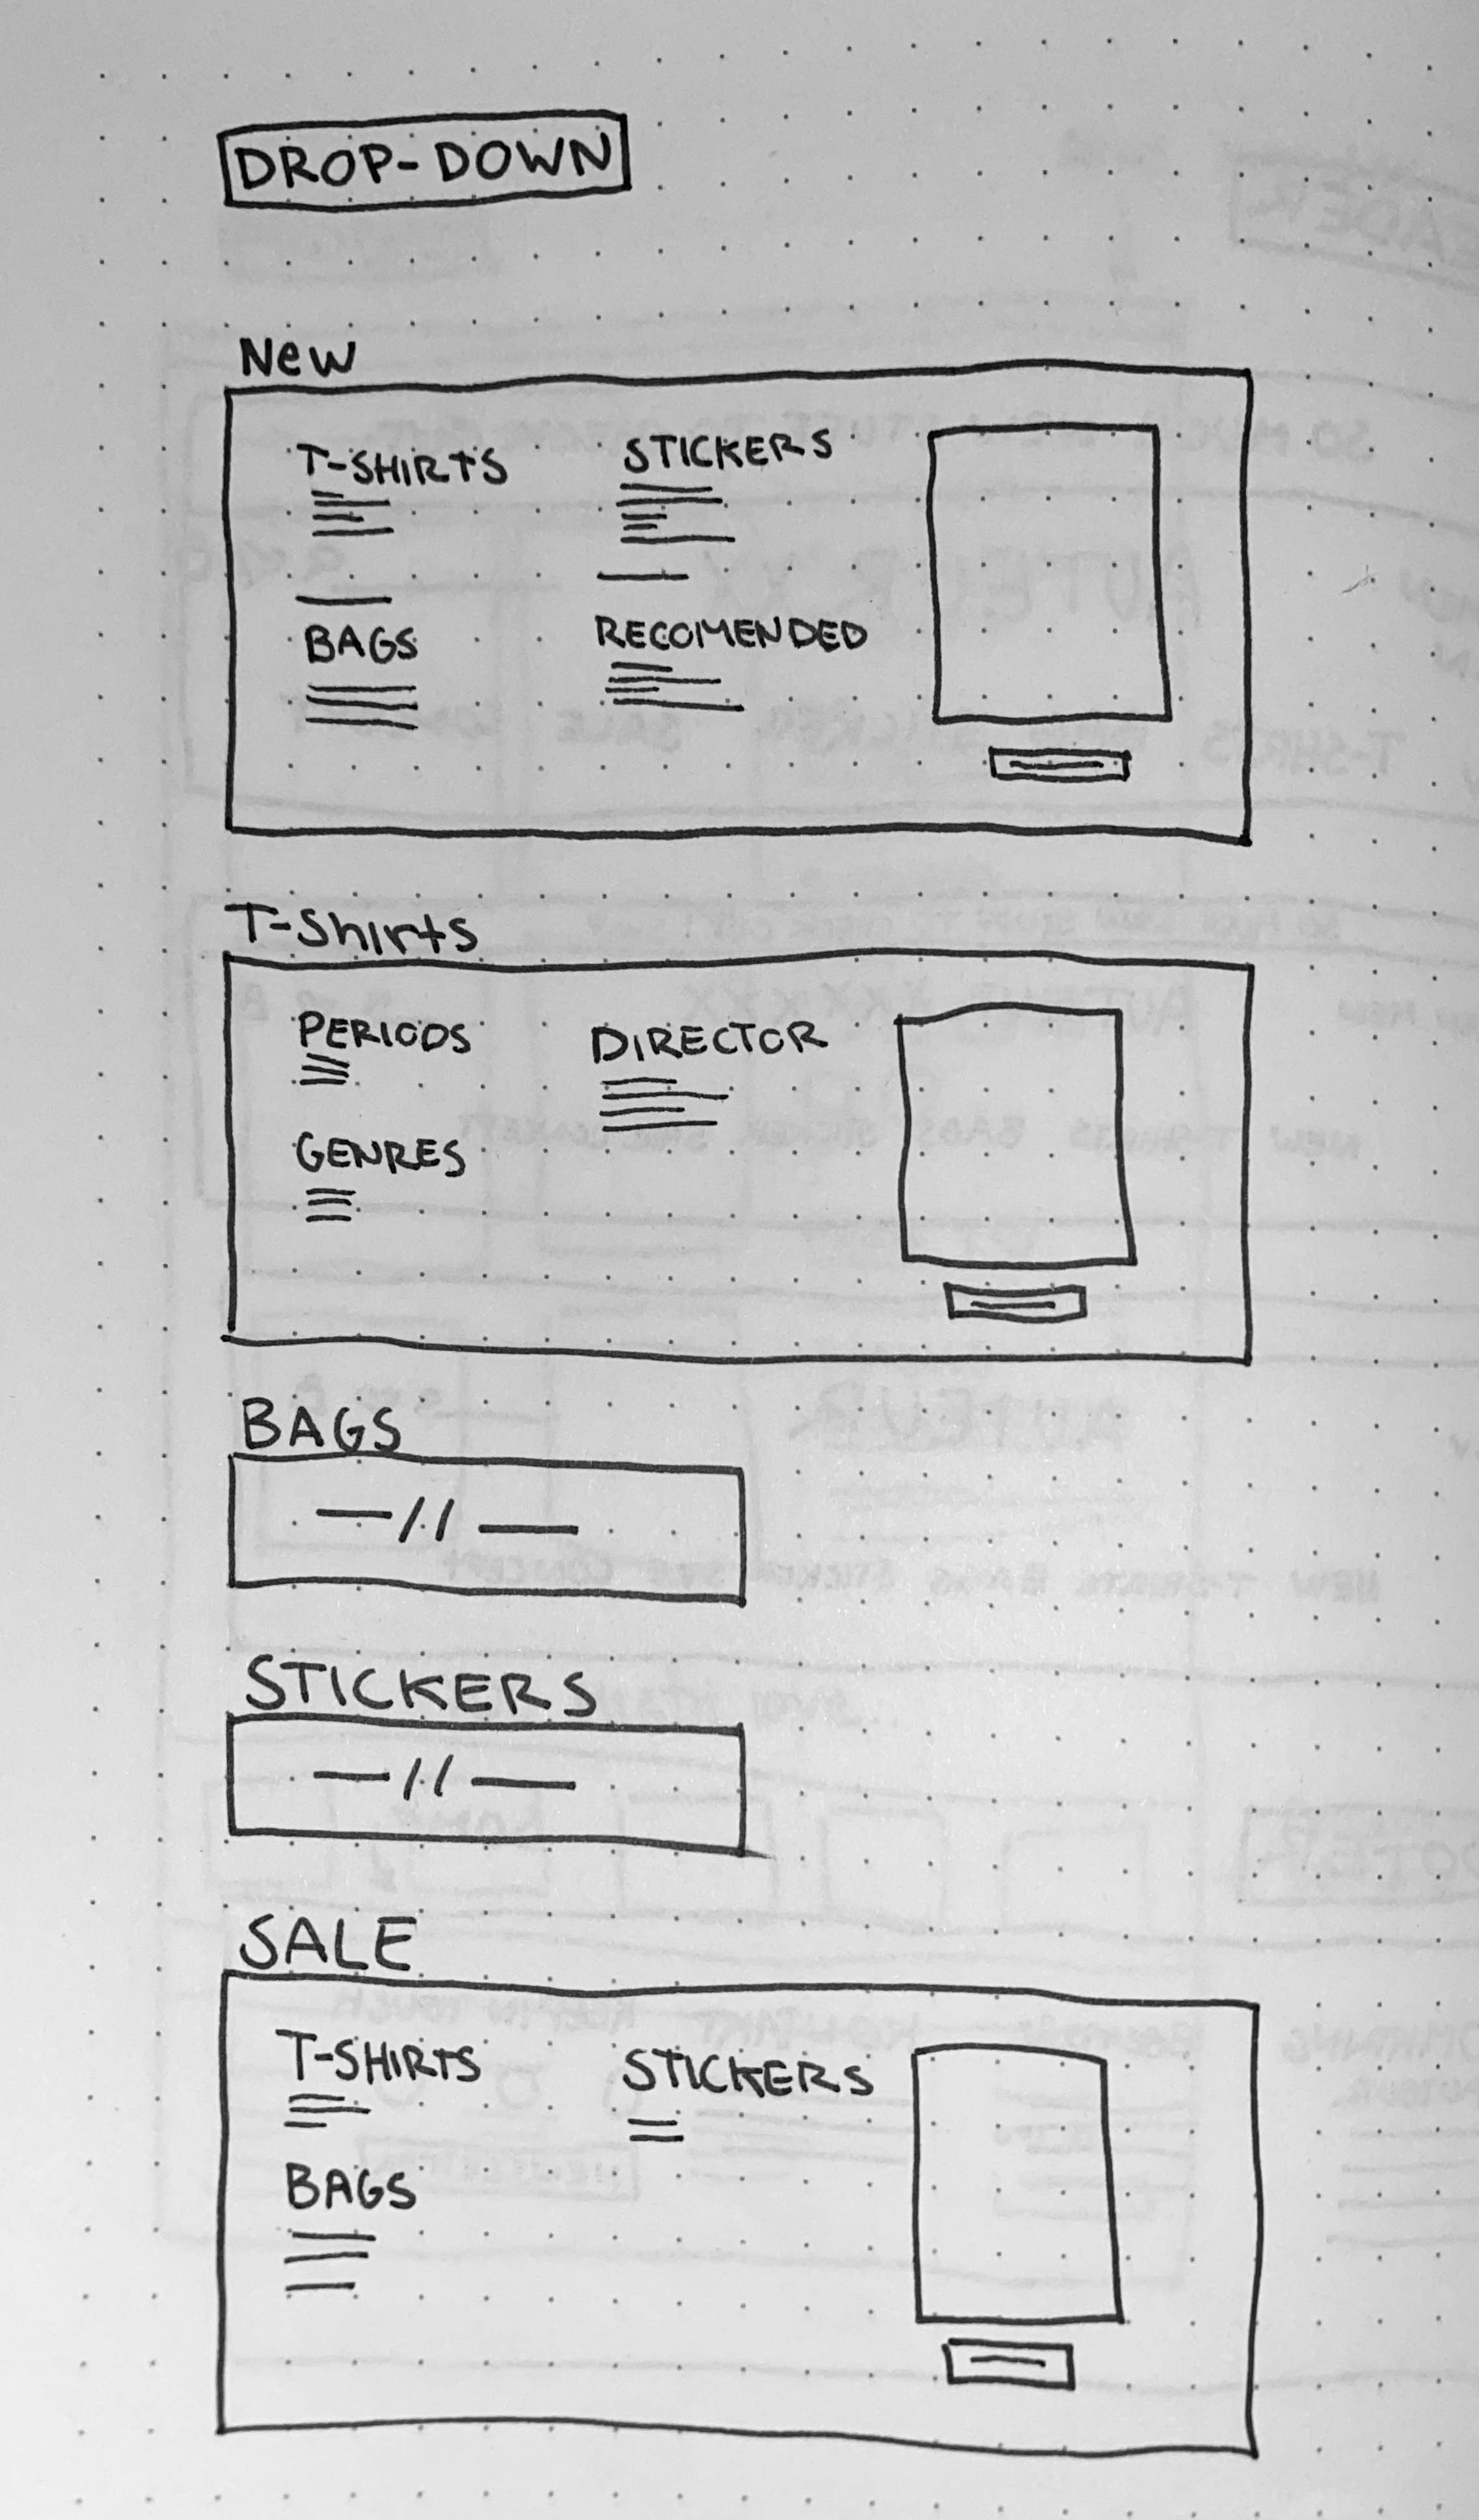 DROP-DOWN
New
T-SHIRTS
STICKERS
BAGS
RECOMENDED
T-Shirts
PERIODS
DIRECTOR
GENRES
BAGS
—//—
STICKERS
—//—
SALE
T-SHIRTS
STICKERS
BAGS